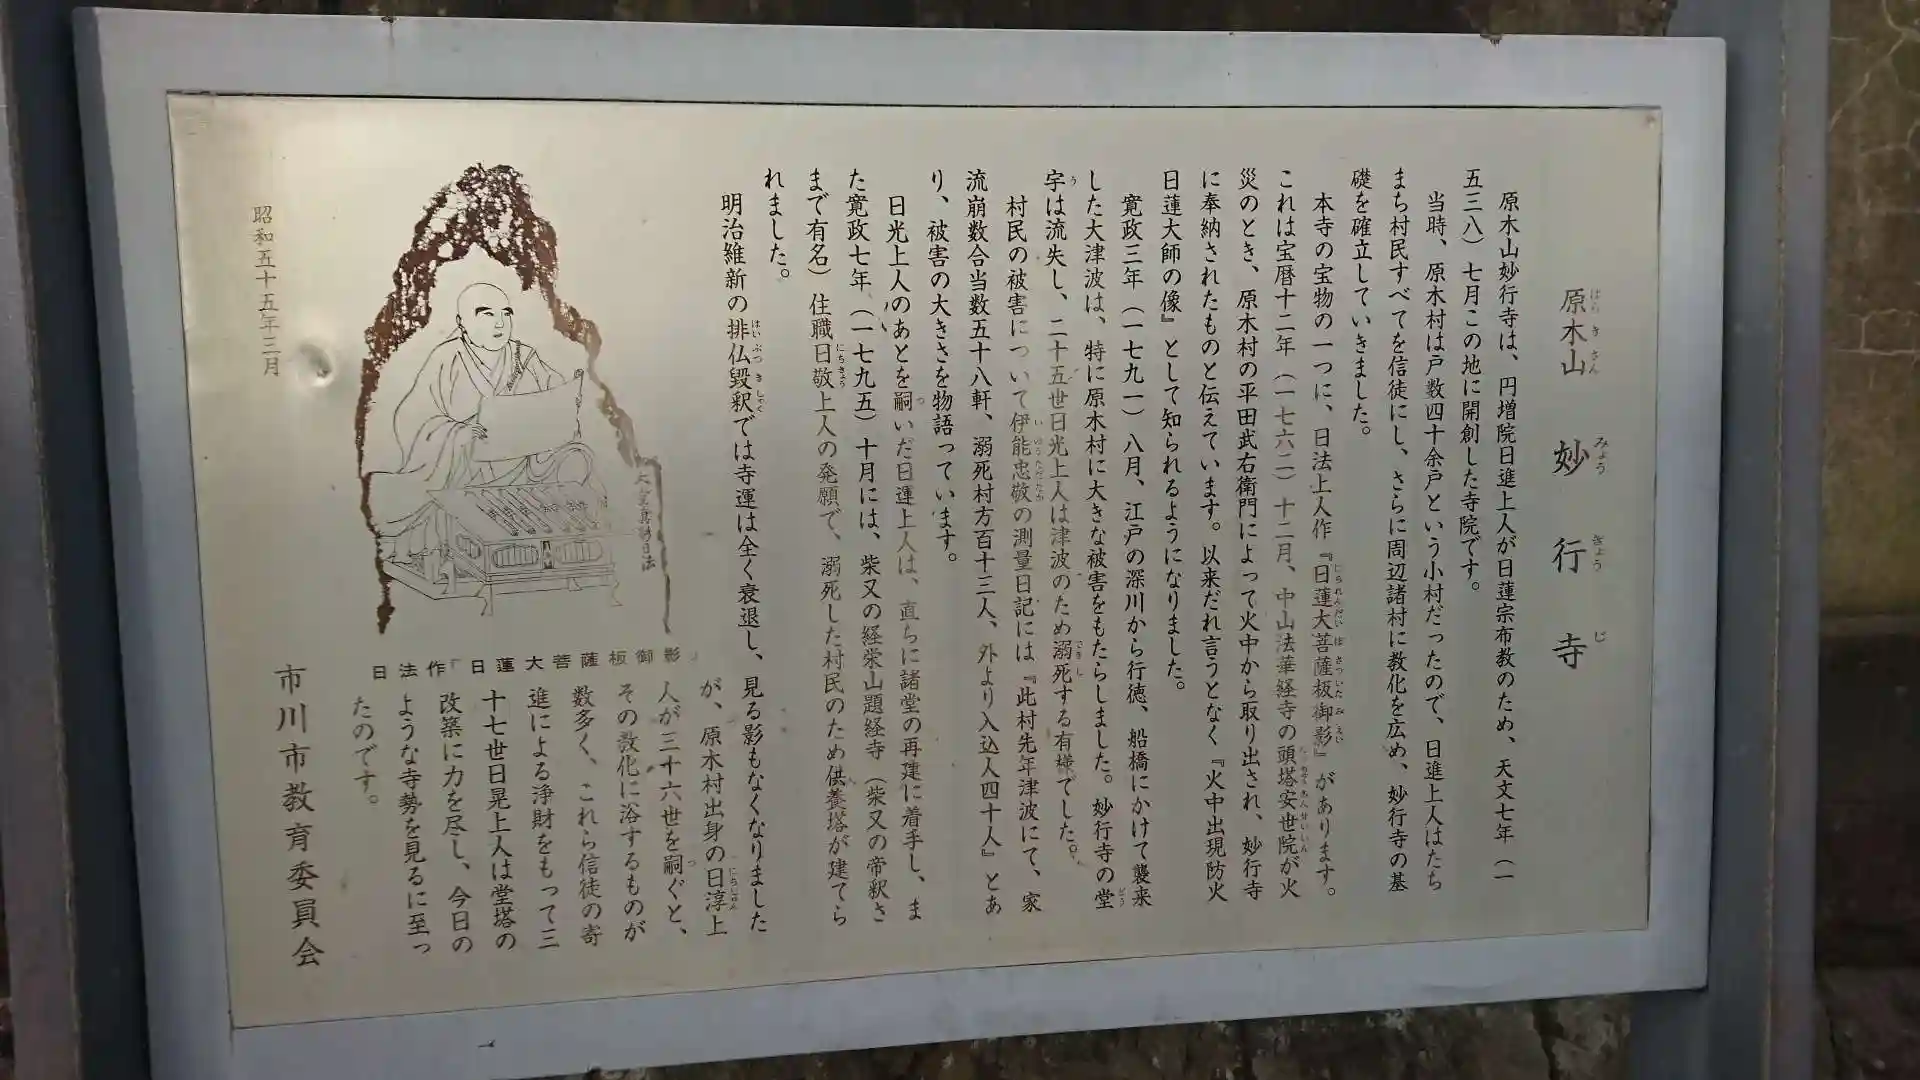 原木山 妙行寺
原木山妙行寺は、円増院日進上人が日蓮宗布教のため、天文七年（一
五三八）七月この地に開創した寺院です。
当時、原木村は戸数四十余戸という小村だったので、日進上人はたち
まち村民すべてを信徒にし、さらに周辺諸村に教化を広め、妙行寺の基
礎を確立していきました。
本寺の宝物の一つに、日法上人作『日蓮大菩薩板御影』があります。
これは宝暦十二年（一七六二）十二月、中山法華経寺の頭塔安世院が火
災のとき、原木村の平田武右衛門によって火中から取り出され、妙行寺
に奉納されたものと伝えています。以来だれ言うとなく『火中出現防火
日蓮大師の像』として知られるようになりました。
寛政三年（一七九一）八月、江戸の深川から行徳、船橋にかけて襲来
した大津波は、特に原木村に大きな被害をもたらしました。妙行寺の堂
宇は流失し、二十五世日光上人は津波のため溺死する有様でした。
村民の被害について伊能忠敬の測量日記には『此村先年津波にて、家
流崩数合当数五十八軒、溺死村方百十三人、外より入込人四十人』とあ
り、被害の大きさを物語っています。
日光上人のあとを嗣いだ日運上人は、直ちに諸堂の再建に着手し、ま
た寛政七年（一七九五）十月には、柴又の経栄山題経寺（柴又の帝釈さ
まで有名）住職日敬上人の発願で、溺死した村民のため供養塔が建てら
れました。
明治維新の排仏毀釈では寺運は全く衰退し、見る影もなくなりました
が、原木村出身の日淳上
人が三十六世を嗣ぐと、
その教化に浴するものが
数多く、これら信徒の寄
進による浄財をもって三
十七世日晃上人は堂塔の
改築に力を尽し、今日の
ような寺勢を見るに至っ
たのです。
日法作「日蓮大菩薩板御影」
昭和五十五年三月
市川市教育委員会